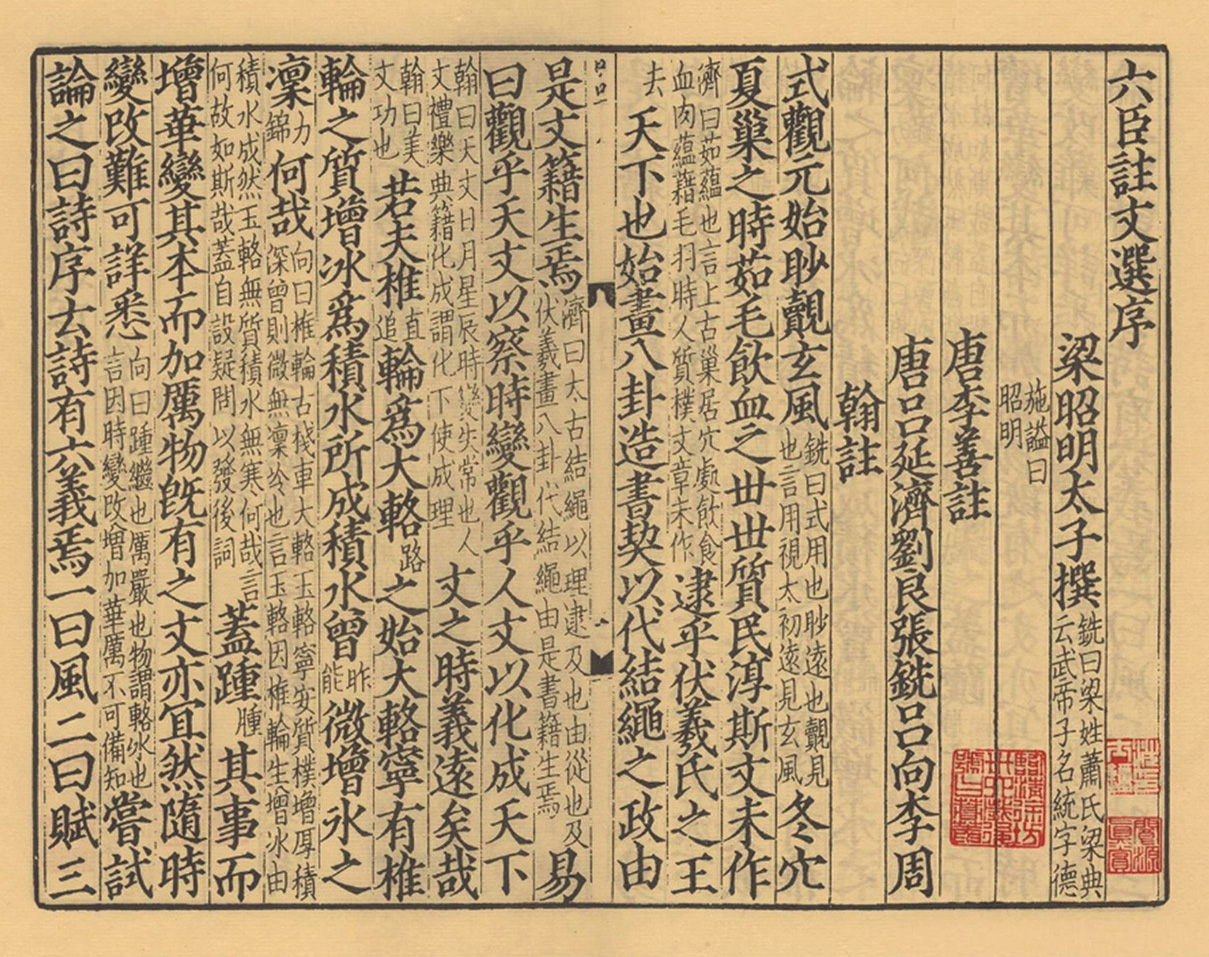 六臣註文選序
梁昭明太子撰銑曰梁姓蕭氏梁典云武帝子名統字德
施謚曰昭明
唐李善註
唐呂延濟劉良張銑呂向李周
翰註
式觀元始眇覿玄風銑曰式用也眇遠也覿見也言用視太初遠見玄風冬穴
夏巢之時茹毛飲血之世世質民淳斯文未作
濟曰茹蘊也言上古巢居穴處飲食血肉蘊藉毛羽時人質樸文章未作逮乎伏羲氏之王
去天下也始畫八卦造書契以代結繩之政由
是文籍生焉濟曰太古結繩以理逮及也由從也及伏羲畫八卦代結繩由是書籍生焉易
曰觀乎天文以察時變觀乎人文以化成天下
翰曰天文日月星辰時變失常也人文禮樂典籍化成謂化下使成理文之時義遠矣哉
翰曰美文功也若夫椎直追輪爲大輅路之始大輅寧有椎
輪之質增冰爲積水所成積水曾昨能微增冰之
凜力錦何哉向曰椎輪古棧車大輅玉輅寧安質樸增厚積深曾則微無凜冷也言玉輅因椎輪生增冰由
積水成然玉輅無質積水無寒何哉言何故如斯哉蓋自設疑問以發後詞蓋踵腫其事而
增華變其本而加厲物旣有之文亦宜然隨時
變改難可詳悉向曰踵繼也厲嚴也物謂輅冰也言因時變改增加華厲不可備知嘗試
論之曰詩序云詩有六義焉一曰風二曰賦三